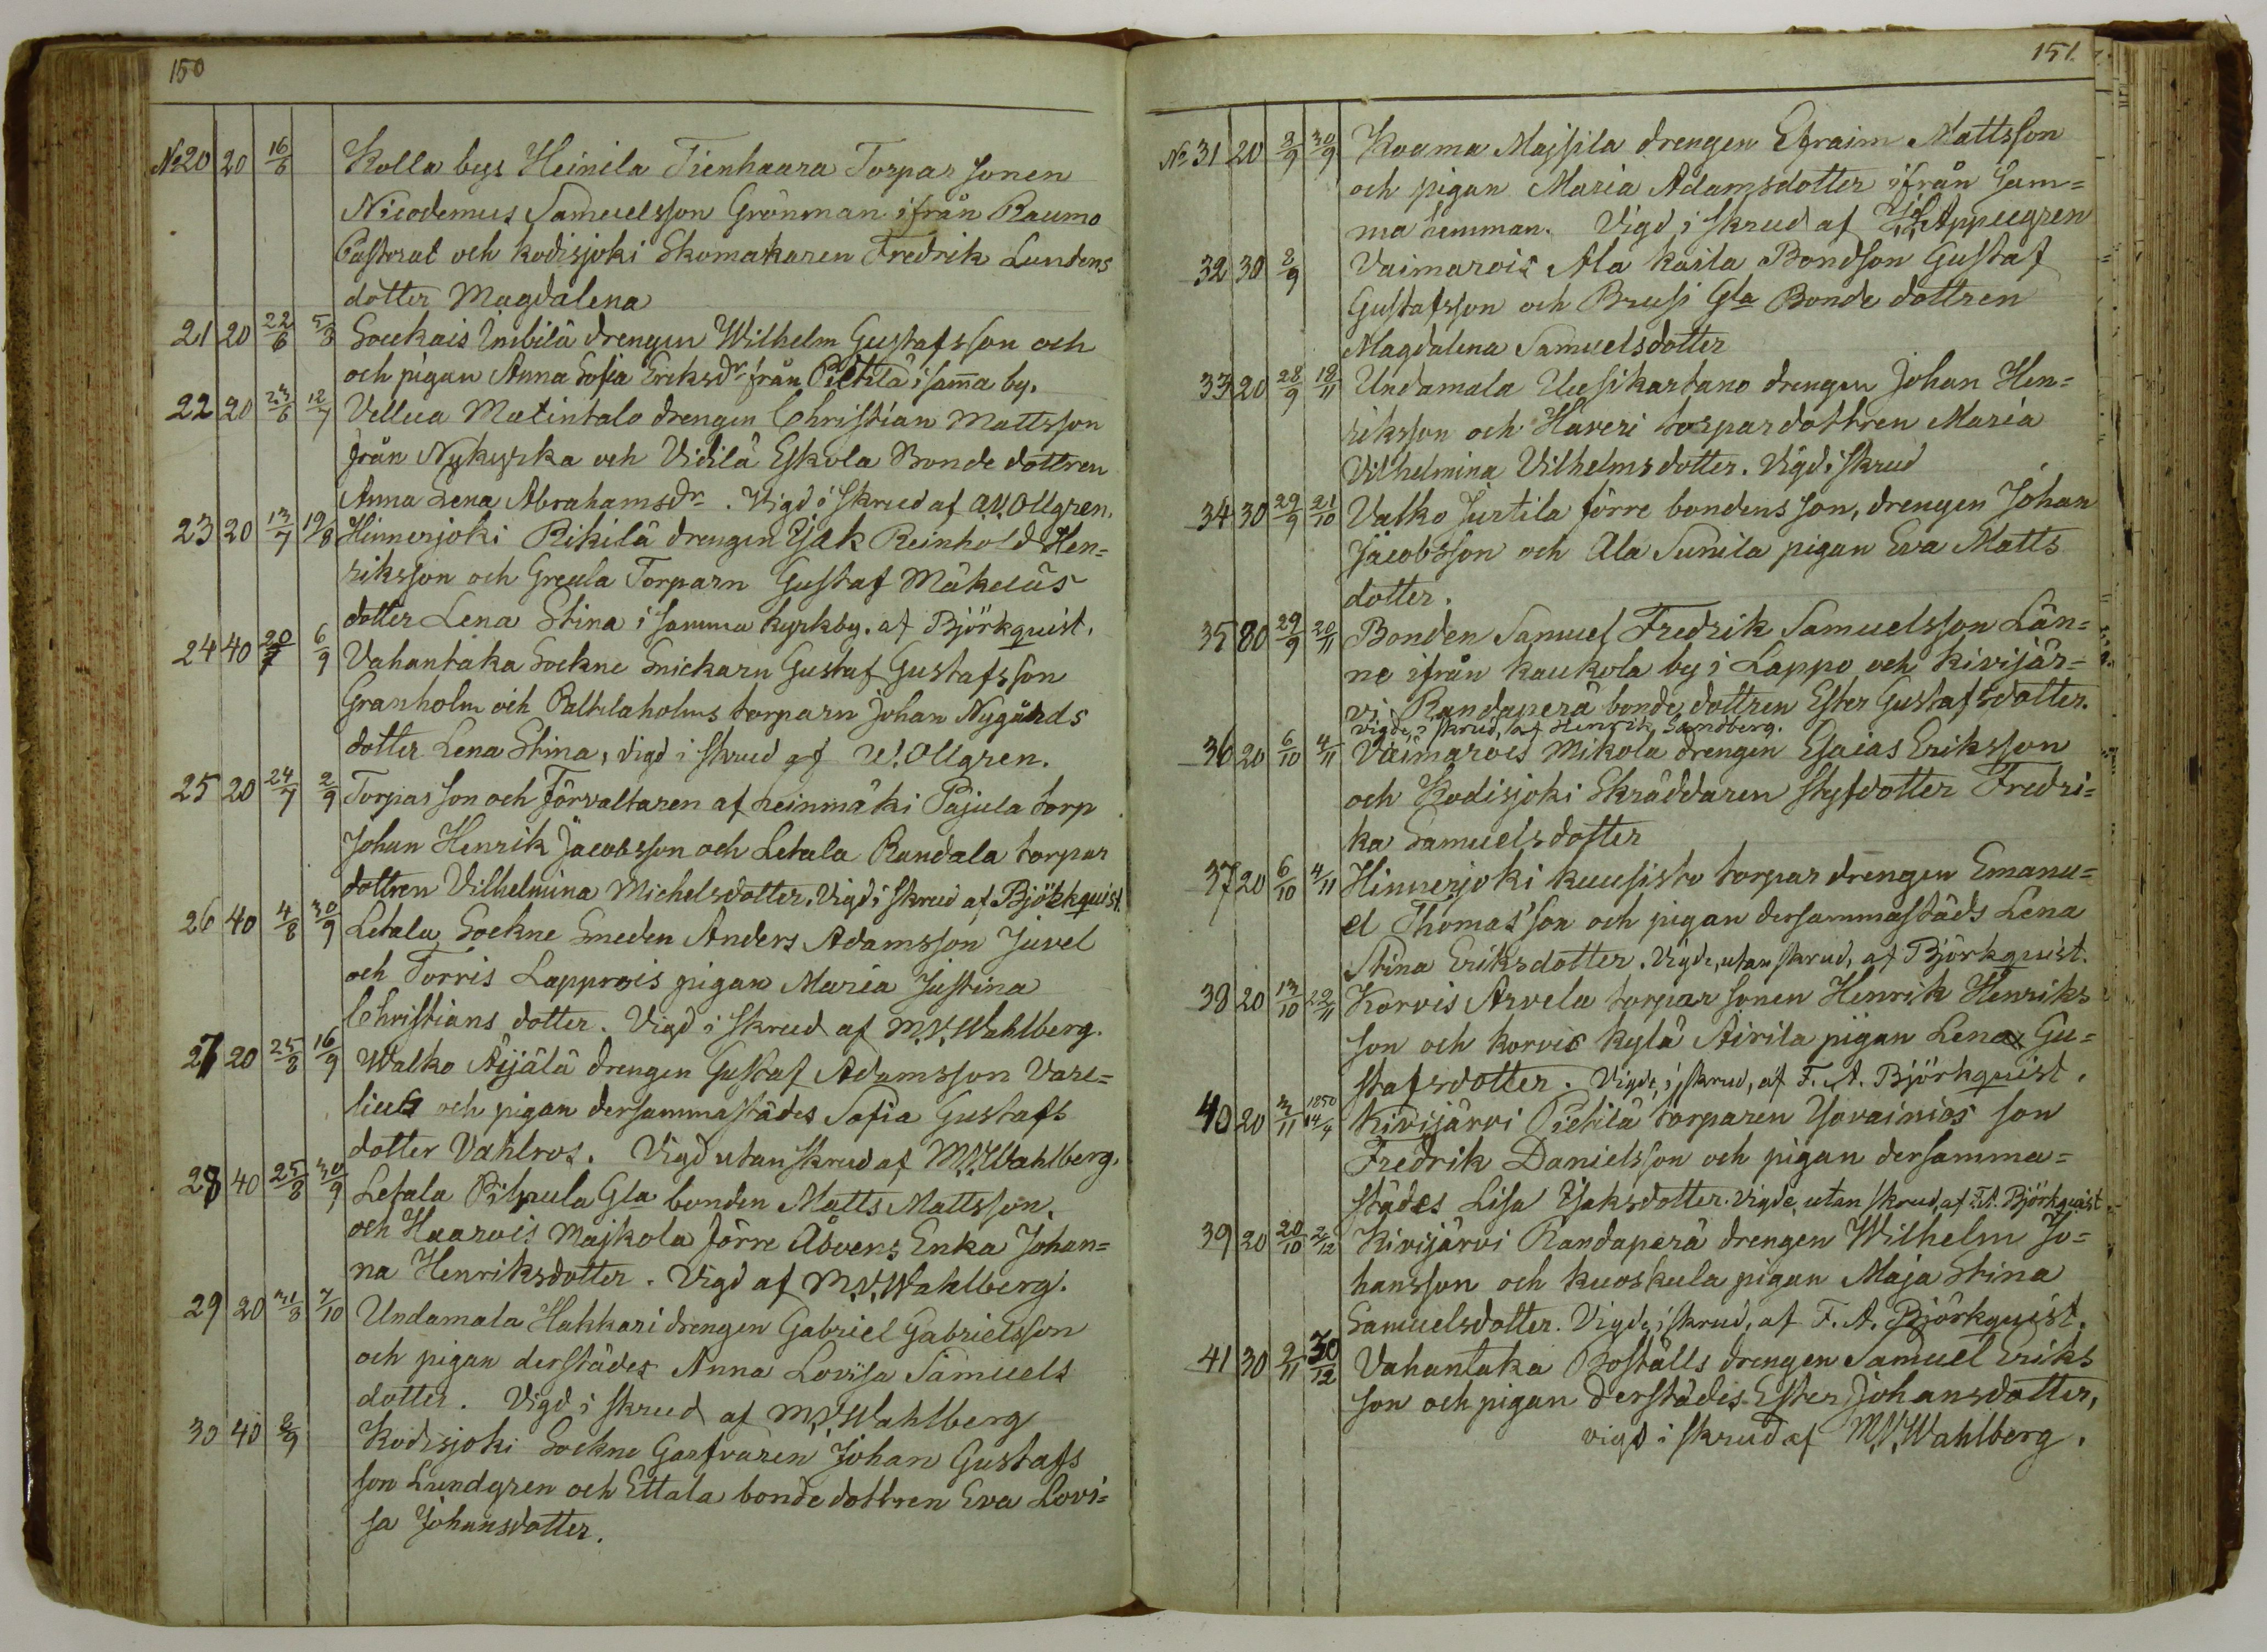 150
No 20 20 16/6 Kolla bys Heinila Tienhaara Torpar sonen
Nicodemus Samuelsson Grönman ifrån Raumo
Pastorat och Kodisjoki Skomakaren Fredrik Lundens
dotter Magdalena
21 20 22/6 5/8 Soukais Imbilä drengen Wilhelm Gustafsson och
och pigan Anna Sofia Eriksdr från Pietilä i sama by.
22 20 23/6 12/7 Vellua Matintalo drengen Christian Mattsson
från Nykyrka och Vidilä Eskola Bonde dottren
Anna Lena Abrahamsdr. Vigd i skrud af A.V. Ollgren.
23 20 13/7 19/8 Hinnerjoki Rikilä drengen Isak Reinhold Hen=
riksson och Greula Torparn Gustaf Mäkeläs
dotter Lena Stina i samma kyrkby. af Björkquist.
24 40 20/7 6/9 Vahantaka Sockne Snickarn Gustaf Gustafsson
Granholm och Paltilaholms torparn Johan Nygårds
dotter Lena Stina, Vigd i skrud af W. Ollgren.
25 20 24/7 2/9 Torpar son och Förvaltaren af heinmäki Pajula torp
Johan Henrik Jacobsson och Letala Randala torpar
dottren Vilhelmina Michelsdotter. Vigd i skrud af Björkquist.
26 40 4/8 30/9 Letala Sockne Smeden Anders Adamsson Juvel
och Torris Lapprois pigan Maria Justina
Christians dotter. Vigd i skrud af M.V. Wahlberg.
27 20 25/8 16/9 Walko Äijälä drengen Gustaf Adamsson Vare=
lius och pigan dersammastädes Sofia Gustafs
dotter Vahlros. Vigd utan skrud af M.V. Wahlberg.
28 40 25/8 30/9 Letala Pilpula Gla bonden Matts Mattsson,
och Haarois Majkola förre Åbvens Enka Johan=
na Henriksdotter. Vigd af M.V. Wahlberg.
29 20 31/8 7/10 Undamala Hakkari drengen Gabriel Gabrielsson
och pigan derstädes Anna Lovisa Samuels
dotter. Vigd i skrud af M.V. Wahlberg
30 40 2/9 Kodisjoki Sockne Garfvaren Johan Gustafs
son Lundgren och Ettala bonde dottren Eva Lovi=
sa Johansdotter.
151.
No 31 20 2/9 30/9 Kooma Majsila drengen Efraim Mattsson
och pigan Maria Adamsdotter ifrån sam=
ma hemman. Vigd i skrud af Appelgren
32 30 2/9 Vaimarois Ala Kaila Bondson Gustaf
Gustafsson och Brusi Gla Bonde dottren
Magdalena Samuelsdotter
33 20 28/9 18/11 Undamala Uusikartano drengen Johan Hen=
riksson och Haveri torpardottren Maria
Vilhelmina Vilhelmsdotter. Vigd i skrud
34 30 29/9 21/10 Valko Jurtila förre bondens son, drengen Johan
Jacobsson och Ala Sunila pigan Eva Matts
dotter.
35 80 29/9 20/11 Bonden Samuel Fredrik Samuelsson Län=
ne ifrån Kaukola by i Lappo och Kivijär=
vi Randaperä bonde dottren Ester Gustafsdotter.
Vigde, i skrud, af Henrik Sandberg.
36 20 6/10 4/11 Vaimarois Mikola drengen Esaias Eriksson
och Kodisjoki Skräddaren styfdotter Fredri=
ka Samuelsdotter
37 20 6/10 4/11 Hinnerjoki Kuusisto torpar drengen Emanu=
el Thomas'son och pigan dersammastäds Lena
Stina Eriksdotter. Vigde, utan skrud, af Björkquist.
38 20 13/10 22/11 Korvis Arvela torpar sonen Henrik Henriks
son och Korvis kylä Airila pigan Lena Gu=
stafsdotter. Vigde, i skrud, af F. A. Björkquist.
40 20 3/11 1850 14/4 Kivijärvi Pietilä torparen Yovainios son
Fredrik Danielsson och pigan dersamma=
städes Lisa Isaksdotter. Vigde, utan skrud, af F.A. Björkquist
39 20 20/10 2/12 Kivijärvi Randaperä drengen Wilhelm Jo=
hansson och Kuoskula pigan Maja Stina
Samuelsdotter. Vigde, i skrud, af F. A. Björkquist.
41 30 2/11 30/12 Vahantaka Boställs drengen Samuel Eriks
son och pigan Derstädes Ester Johansdotter,
vigd i skrud af M.V. Wahlberg.